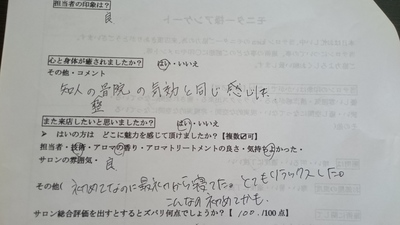 担当者の印象は？
良
心と身体が癒されましたか？ はい・いいえ
その他・コメント
知人の整院の気功と同じ感じした
整
また来店したいと思いましたか？ はい・いいえ
➢ はいの方は どこに魅力を感じて頂けましたか？【複数可】
担当者・技術・アロマの香り・アロマトリートメントの良さ・気持よかった・
サロンの雰囲気・
良
その他（ 初めてなのに最初から寝てた。とてもリラックスした。
こんなの初めてかも。
サロン総合評価を出すとするとズバリ何点でしょうか？【 100. /100点】